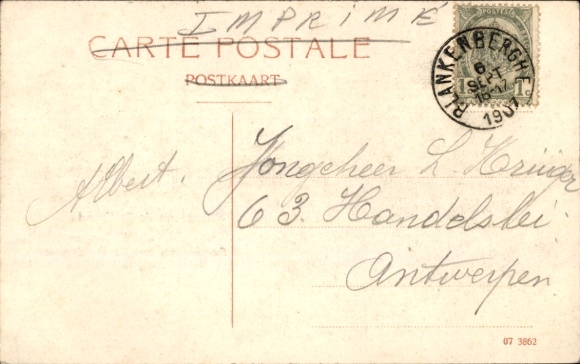 IMPRIMÉ
CARTE POSTALE
POSTKAART
POSTES
BLANKENBERGHE
6
SEPT
16-17
1907
1c 1c
Albert.
Jongeheer L. Krüger
63 Handelslei.
Antwerpen
07 3862